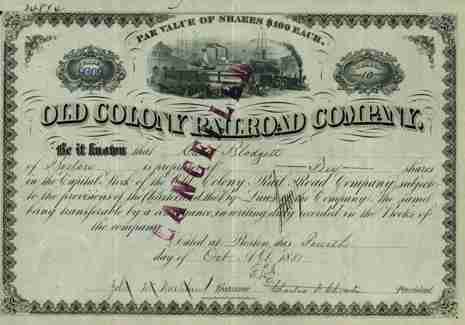 PAR VALUE OF SHARES $100 EACH.
10
OLD COLONY RAILROAD COMPANY.
CANCELLED
Be it known that Blodgett
of Boston is proprietor of Ten shares
in the Capital Stock of the Old Colony Rail Road Company, subject
to the provisions of the Charter and the By Laws of the Company, the same
being transferable by a conveyance in writing duly recorded in the Books of
the company
Dated at Boston, this Fourth
day of Oct. A.D. 1881
John Treasurer Charles F. Choate President